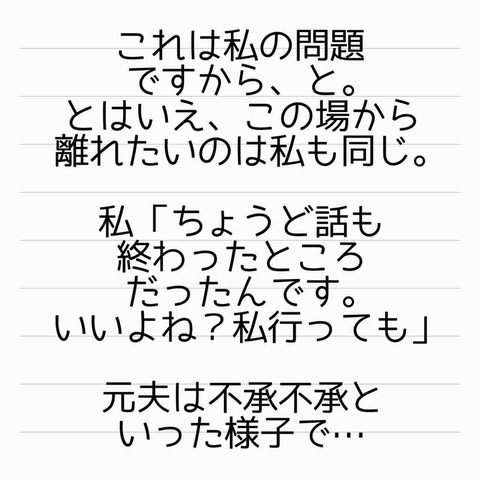 これは私の問題
ですから、と。
とはいえ、この場から
離れたいのは私も同じ。
私「ちょうど話も
終わったところ
だったんです。
いいよね？私行っても」
元夫は不承不承と
いった様子で…